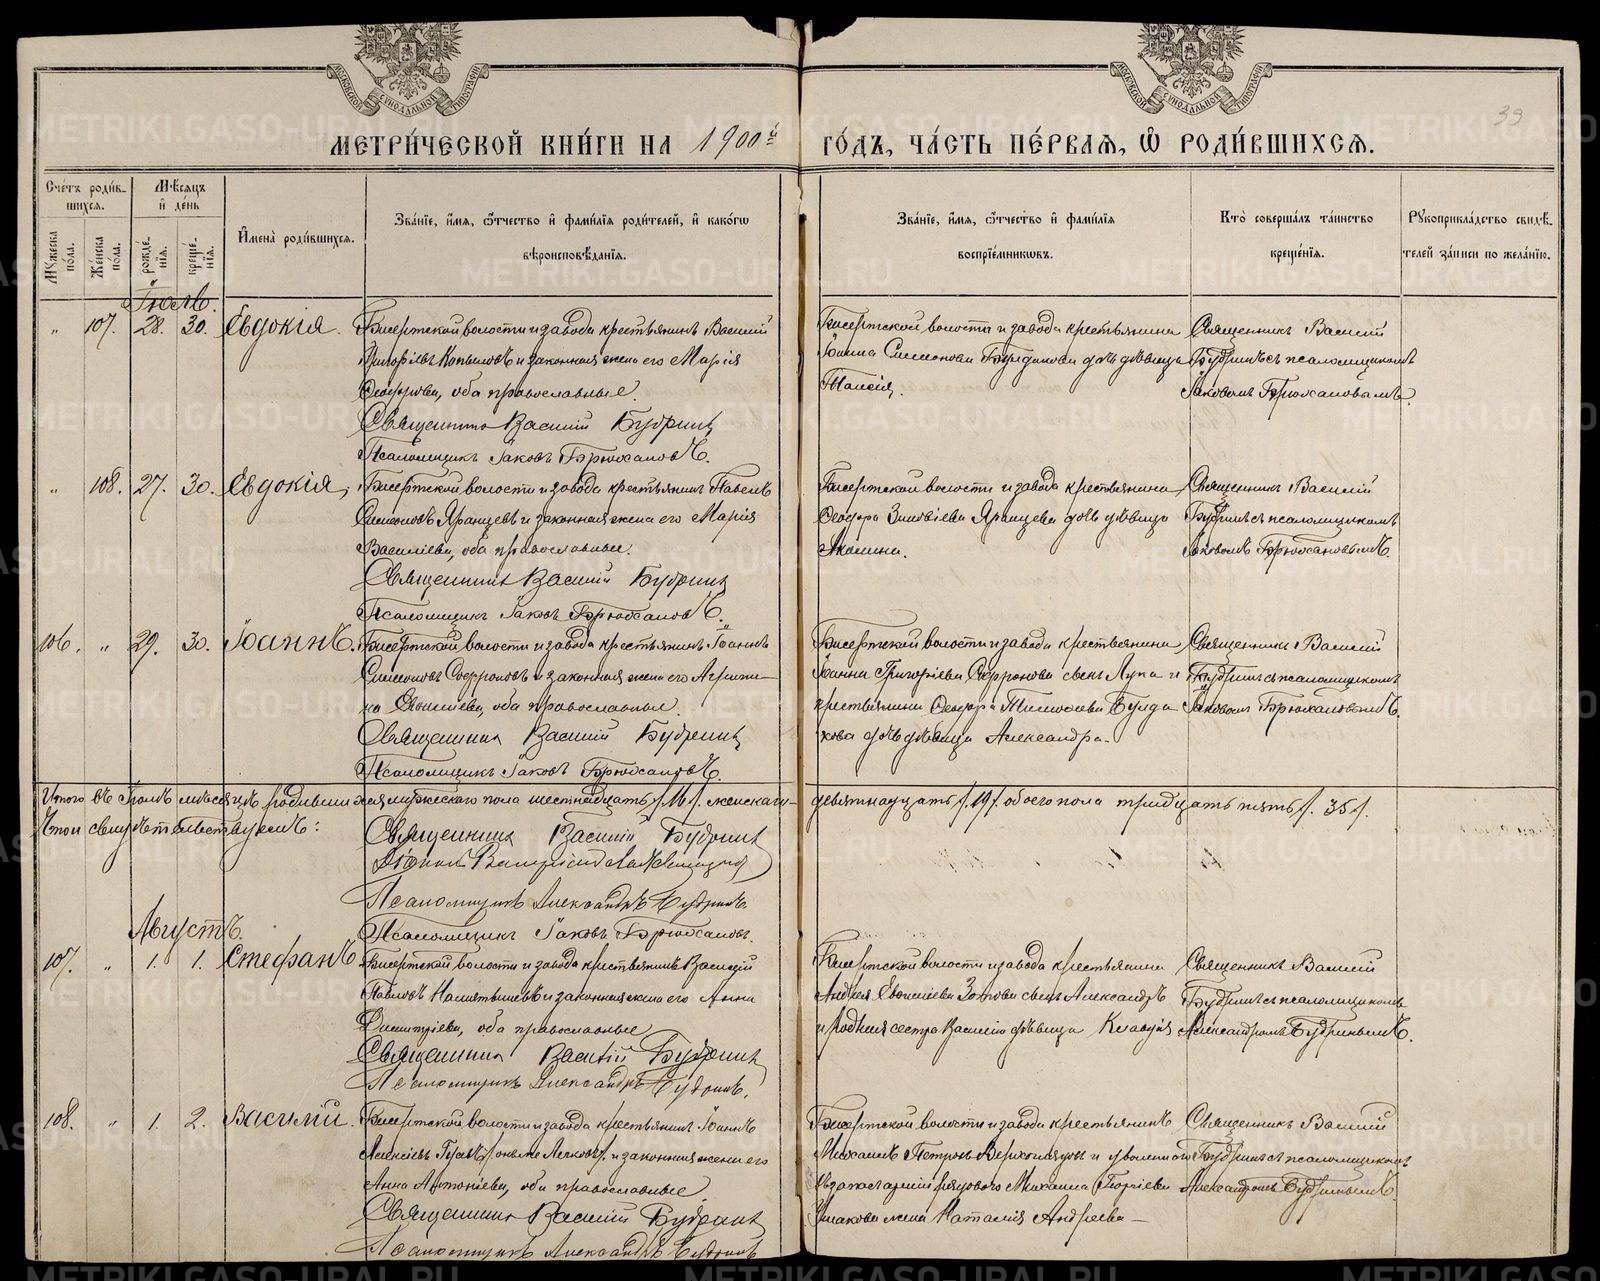 МЕТРИ́ЧЕСКОЙ КНИ́ГИ НА 1900й ГО́ДЪ, ЧА́СТЬ ПЕ́РВАѦ, Ѽ РОДИ́ВШИХСѦ.
39
МОСКОВСКОЙ СѴНОДАЛЬНОЙ ТИПОГРАФІИ
МОСКОВСКОЙ СѴНОДАЛЬНОЙ ТИПОГРАФІИ
Сче́тъ роди́в-
шихсѧ.
Мꙋ́жеска по́ла.
Же́нска по́ла.
Мѣ́сѧцъ и҆ де́нь
рожде́-
нїѧ.
креще́-
нїѧ.
И҆мена̀ роди́вшихсѧ.
Зва́нїе, и҆́мѧ, ѻ҆́тчество и҆ фами́лїѧ роди́телей, и҆ како́гѡ
вѣроисповѣ́данїѧ.
Зва́нїе, и҆́мѧ, ѻ҆́тчество и҆ фами́лїѧ
воспрїе́мникѡвъ.
Кто̀ соверша́лъ та́инство
креще́нїѧ.
Рꙋкоприкла́дство свидѣ́-
телей за́писи по жела́нїю.
Іюль.
" 107. 28. 30. Евдокія.
Бисертской волости и завода крестьянинъ Василій
Григорьевъ Копыловъ и законная жена его Марія
Ѳеодорова, оба православные.
Священникъ Василій Будринъ
Псаломщикъ Іаковъ Брюхановъ.
Бисертской волости и завода крестьянина
Іоанна Симеонова дочь дѣвица
Таисія.
Священникъ Василій
Будринъ съ псаломщикомъ
Іаковомъ Брюхановымъ.
" 108. 27. 30. Евдокія,
Бисертской волости и завода крестьянинъ Павелъ
Симеоновъ Яранцевъ и законная жена его Марія
Василіева, оба православные.
Священникъ Василій Будринъ
Псаломщикъ Іаковъ Брюхановъ.
Бисертской волости и завода крестьянина
Ѳеодора Зиновіева Яранцева дочь дѣвица
Акилина.
Священникъ Василій
Будринъ съ псаломщикомъ
Іаковомъ Брюхановымъ.
106. " 29. 30. Іоаннъ.
Бисертской волости и завода крестьянинъ Іоаннъ
Симеоновъ Софроновъ и законная жена его Агрипи-
на Евфиміева, оба православные.
Священникъ Василій Будринъ
Псаломщикъ Іаковъ Брюхановъ.
Бисертской волости и завода крестьянина
Іоанна Григоріева Софронова сынъ Лука и
крестьянина Ѳеодора Тимоѳеева Булда-
кова дочь дѣвица Александра.
Священникъ Василій
Будринъ съ псаломщикомъ
Іаковомъ Брюхановымъ.
Итого въ Іюлѣ мѣсяцѣ родившихся мужескаго пола шестнадцать /16/. женскаго- девятнадцать /.19/. обоего пола тридцать пять /. 35/.
Въ томъ свидѣтельствуемъ:
Священникъ Василій Будринъ
Діаконъ
Псаломщикъ Александръ Будринъ.
Псаломщикъ Іаковъ Брюхановъ.
Августъ.
107. " 1. 1. Стефанъ
Бисертской волости и завода крестьянинъ Василій
Павловъ и законная жена его Анна
Димитріева, оба православные
Священникъ Василій Будринъ
Псаломщикъ Александръ Будринъ.
Бисертской волости и завода крестьянина
Андрея Евфиміева Зотова сынъ Александръ
и родная сестра Василія дѣвица Клавдія
Священникъ Василій
Будринъ съ псаломщикомъ
Александромъ Будринымъ.
108. " 1. 2. Василій.
Бисертской волости и завода крестьянинъ Іоаннъ
Алексіевъ Гусевъ и законная жена его
Анна Антоніева, оба православные.
Священникъ Василій Будринъ
Псаломщикъ Александръ Будринъ
Бисертской волости и завода крестьянинъ
Михаилъ Петровъ и уволеннаго
въ запасъ арміи рядового Михаила Георгіева
Ушакова жена Наталія Андреева-
Священникъ Василій
Будринъ съ псаломщикомъ
Александромъ Будринымъ
METRIKI.GASO-URAL.RU